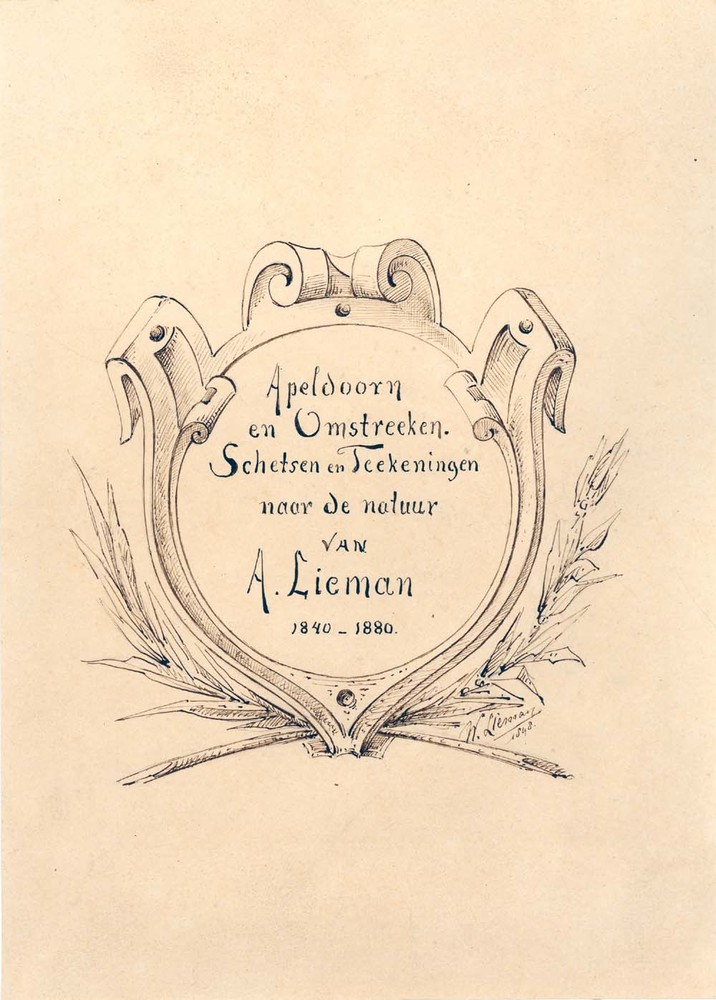 Apeldoorn
en Omstreeken.
Schetsen en Teekeningen
naar de natuur
VAN
A. Lieman
1840 - 1880.
W. Lieman